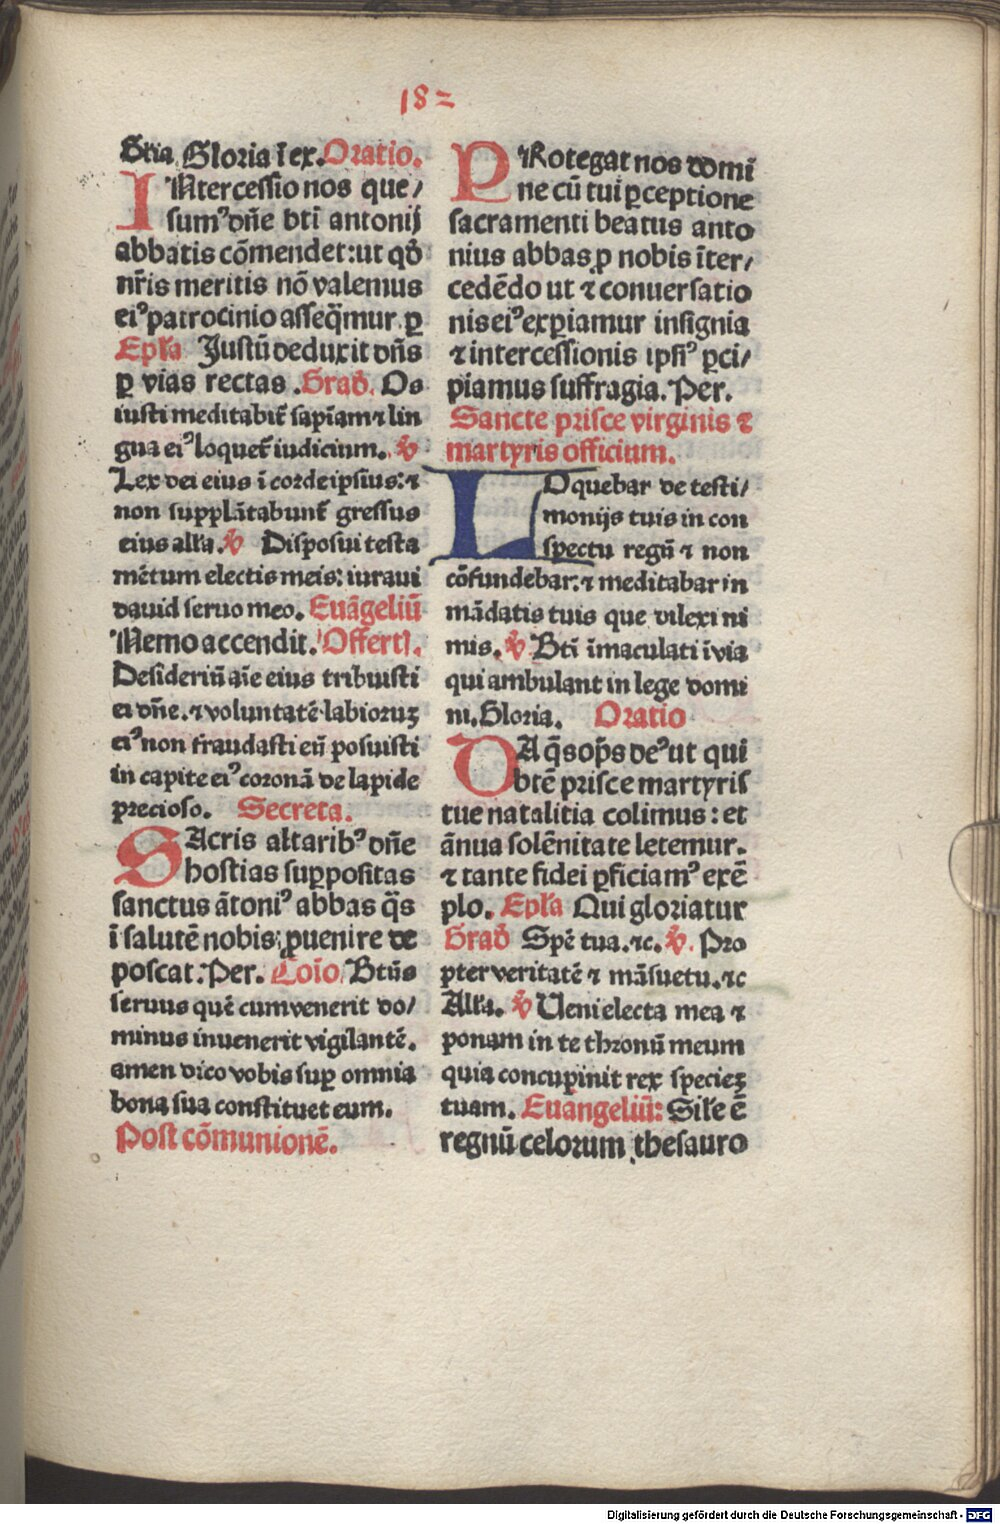 182
Gria Gloria ī ex. Oratio.
INtercessio nos que/
sumꝰ dñe bti antonij
abbatis cōmendet: ut qđ
nr̄is meritis nō valemus
eiꝰ patrocinio asseq̄mur. ꝑ
Epl̄a Justū deduxit dñs
ꝑ vias rectas. Grad̄. Os
iusti meditabit̄ sapīam ⁊ lin
gua eiꝰ loquet̄ iudicium. ℣
Lex dei eius ī corde ipsius: ⁊
non supplātabunt̄ gressus
eius all'a. ℣ Disposui testa
mētum electis meis: iuraui
dauid seruo meo. Euāgeliū
Nemo accendit. Offert̄.
Desideriū aīe eius tribuisti
ei dñe. ⁊ voluntatē labioruꝫ
eiꝰ non fraudasti eū posuisti
in capite eiꝰ coronā de lapide
precioso. Secreta.
SAcris altaribꝰ dñe
hostias suppositas
sanctus ātoniꝰ abbas q̄s
ī salutē nobis ꝓuenire de
poscat. Per. Coīo. Btūs
seruus quē cum venerit do/
minus inuenerit vigilantē.
amen dico vobis sup̱ omnia
bona sua constituet eum.
Post cōmunionē.
PRotegat nos domi
ne cū tui ꝑceptione
sacramenti beatus anto
nius abbas ꝓ nobis īter/
cedēdo ut ⁊ conuersatio
nis eiꝰ exꝑiamur insignia
⁊ intercessionis ipsiꝰ ꝑci/
piamus suffragia. Per.
Sancte prisce virginis ⁊
martyris officium.
LOquebar de testi/
monijs tuis in con
spectu regū ⁊ non
cōfundebar: ⁊ meditabar in
mādatis tuis que dilexi ni
mis. ℣ Bti īmaculati ī via
qui ambulant in lege domi
ni. Gloria. Oratio
DA q̄s op̄s deꝰ ut qui
btē prisce martyris
tue natalitia colimus: et
ānua solēnitate letemur.
⁊ tante fidei ꝓficiamꝰ exē
plo. Epl̄a Qui gloriatur
Grad̄ Spē tua. ⁊c. ℣. Pro
pter veritatē ⁊ māsuetu. ⁊c
All'a. ℣ Ueni electa mea ⁊
ponam in te thronū meum
quia concupiuit rex specieꝫ
tuam. Euangeliū: Sil'e ē
regnū celorum thesauro
Digitalisierung gefördert durch die Deutsche Forschungsgemeinschaft - DFG